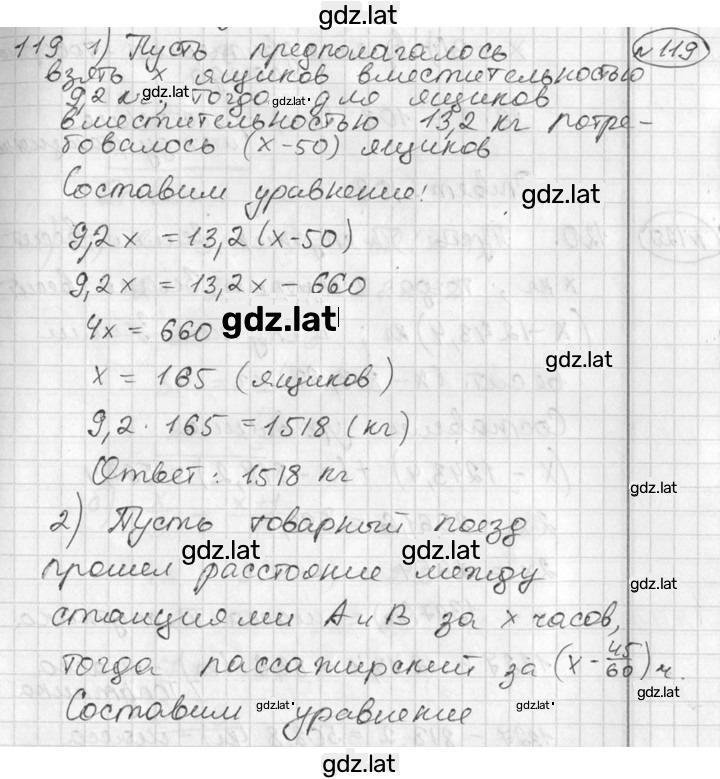 gdz.lat
119 1) Пусть предполагалось №119
взять x ящиков вместительностью
9,2 кг, gdz.lat тогда gdz.lat для ящиков
вместительностью 13,2 кг потре-
бовалось (x-50) ящиков
Составим уравнение! gdz.lat
9,2x = 13,2(x-50)
9,2x = 13,2x - 660
4x = 660 gdz.lat
gdz.lat
x = 165 (ящиков)
9,2 · 165 = 1518 (кг)
Ответ: 1518 кг
gdz.lat
2) Пусть товарный поезд
gdz.lat gdz.lat
прошел расстояние между
gdz.lat
станциями А и В за x часов,
тогда пассажирский за (x - 45/60) ч.
gdz.lat
Составим gdz.lat уравнение gdz.lat
gdz.lat